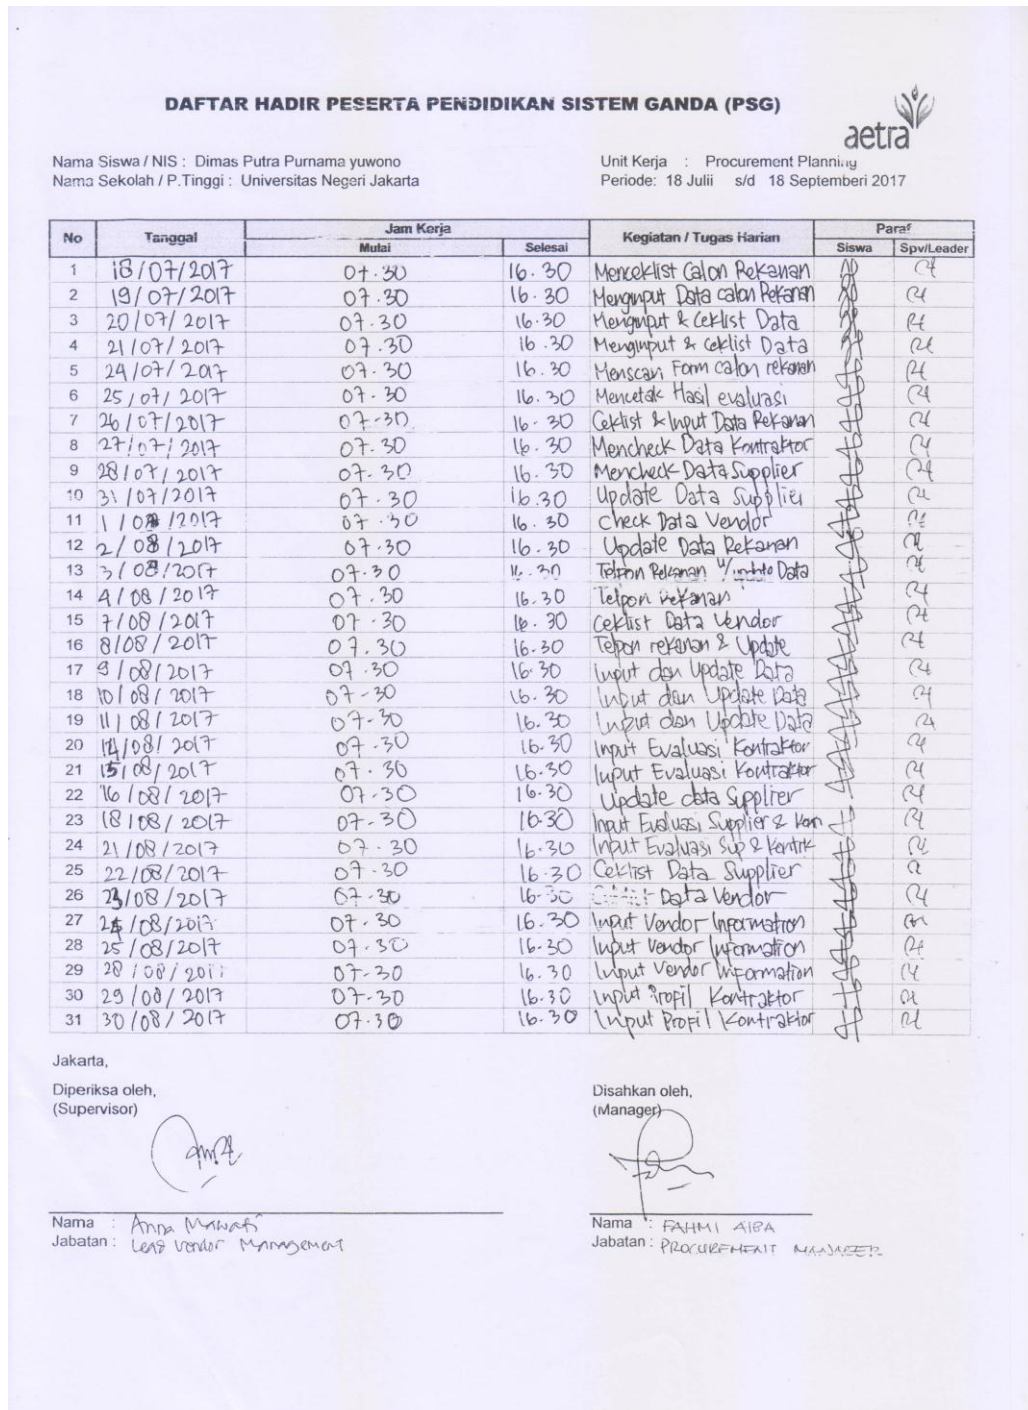 DAFTAR HADIR PESERTA PENDIDIKAN SISTEM GANDA (PSG)
aetra
Nama Siswa / NIS : Dimas Putra Purnama yuwono
Unit Kerja : Procurement Planning
Nama Sekolah / P.Tinggi : Universitas Negeri Jakarta
Periode: 18 Julii s/d 18 Septemberi 2017
No Tanggal Jam Kerja Kegiatan / Tugas Harian Paraf
Mulai Selesai Siswa Spv/Leader
1 18/07/2017 07.30 16.30 Menceklist Calon Rekanan
2 19/07/2017 07.30 16.30 Menginput Data calon Rekanan
3 20/07/2017 07.30 16.30 Menginput & Ceklist Data
4 21/07/2017 07.30 16.30 Menginput & ceklist Data
5 24/07/2017 07.30 16.30 Menscan Form calon rekanan
6 25/07/2017 07.30 16.30 Mencetak Hasil evaluasi
7 26/07/2017 07-30 16-30 Ceklist & Input Data Rekanan
8 27/07/2017 07.30 16.30 Mencheck Data Kontraktor
9 28/07/2017 07.30 16.30 Mencheck Data Supplier
10 31/07/2017 07.30 16.30 Update Data Supplier
11 1/08/2017 07.30 16.30 check Data Vendor
12 2/08/2017 07.30 16.30 Update Data Rekanan
13 3/08/2017 07.30 16.30 Telpon Rekanan Data
14 4/08/2017 07.30 16.30 Telpon rekanan
15 7/08/2017 07.30 16.30 Ceklist Data Vendor
16 8/08/2017 07.30 16.30 Telpon rekanan & Update
17 9/08/2017 07.30 16.30 Input dan Update Data
18 10/08/2017 07-30 16.30 Input dan Update Data
19 11/08/2017 07-30 16.30 Input dan Update Data
20 14/08/2017 07.30 16.30 Input Evaluasi Kontraktor
21 15/08/2017 07.30 16.30 Input Evaluasi Kontraktor
22 16/08/2017 07-30 16.30 Update data Supplier
23 18/08/2017 07-30 16.30 Input Evaluasi Supplier & Kon
24 21/08/2017 07.30 16.30 Input Evaluasi Sup & Kontrk
25 22/08/2017 07.30 16-30 Ceklist Data Supplier
26 23/08/2017 07-30 16-30 Data Vendor
27 24/08/2017 07.30 16.30 Input Vendor Information
28 25/08/2017 07.30 16-30 Input Vendor Information
29 28/08/2017 07-30 16.30 Input Vendor Information
30 29/08/2017 07-30 16.30 Input Profil Kontraktor
31 30/08/2017 07.30 16.30 Input Profil Kontraktor
Jakarta,
Diperiksa oleh,
(Supervisor)
Disahkan oleh,
(Manager)
Nama : Anna Mawati
Jabatan : Lead Vendor Management
Nama : FAHMI
Jabatan : PROCUREMENT MANAGER